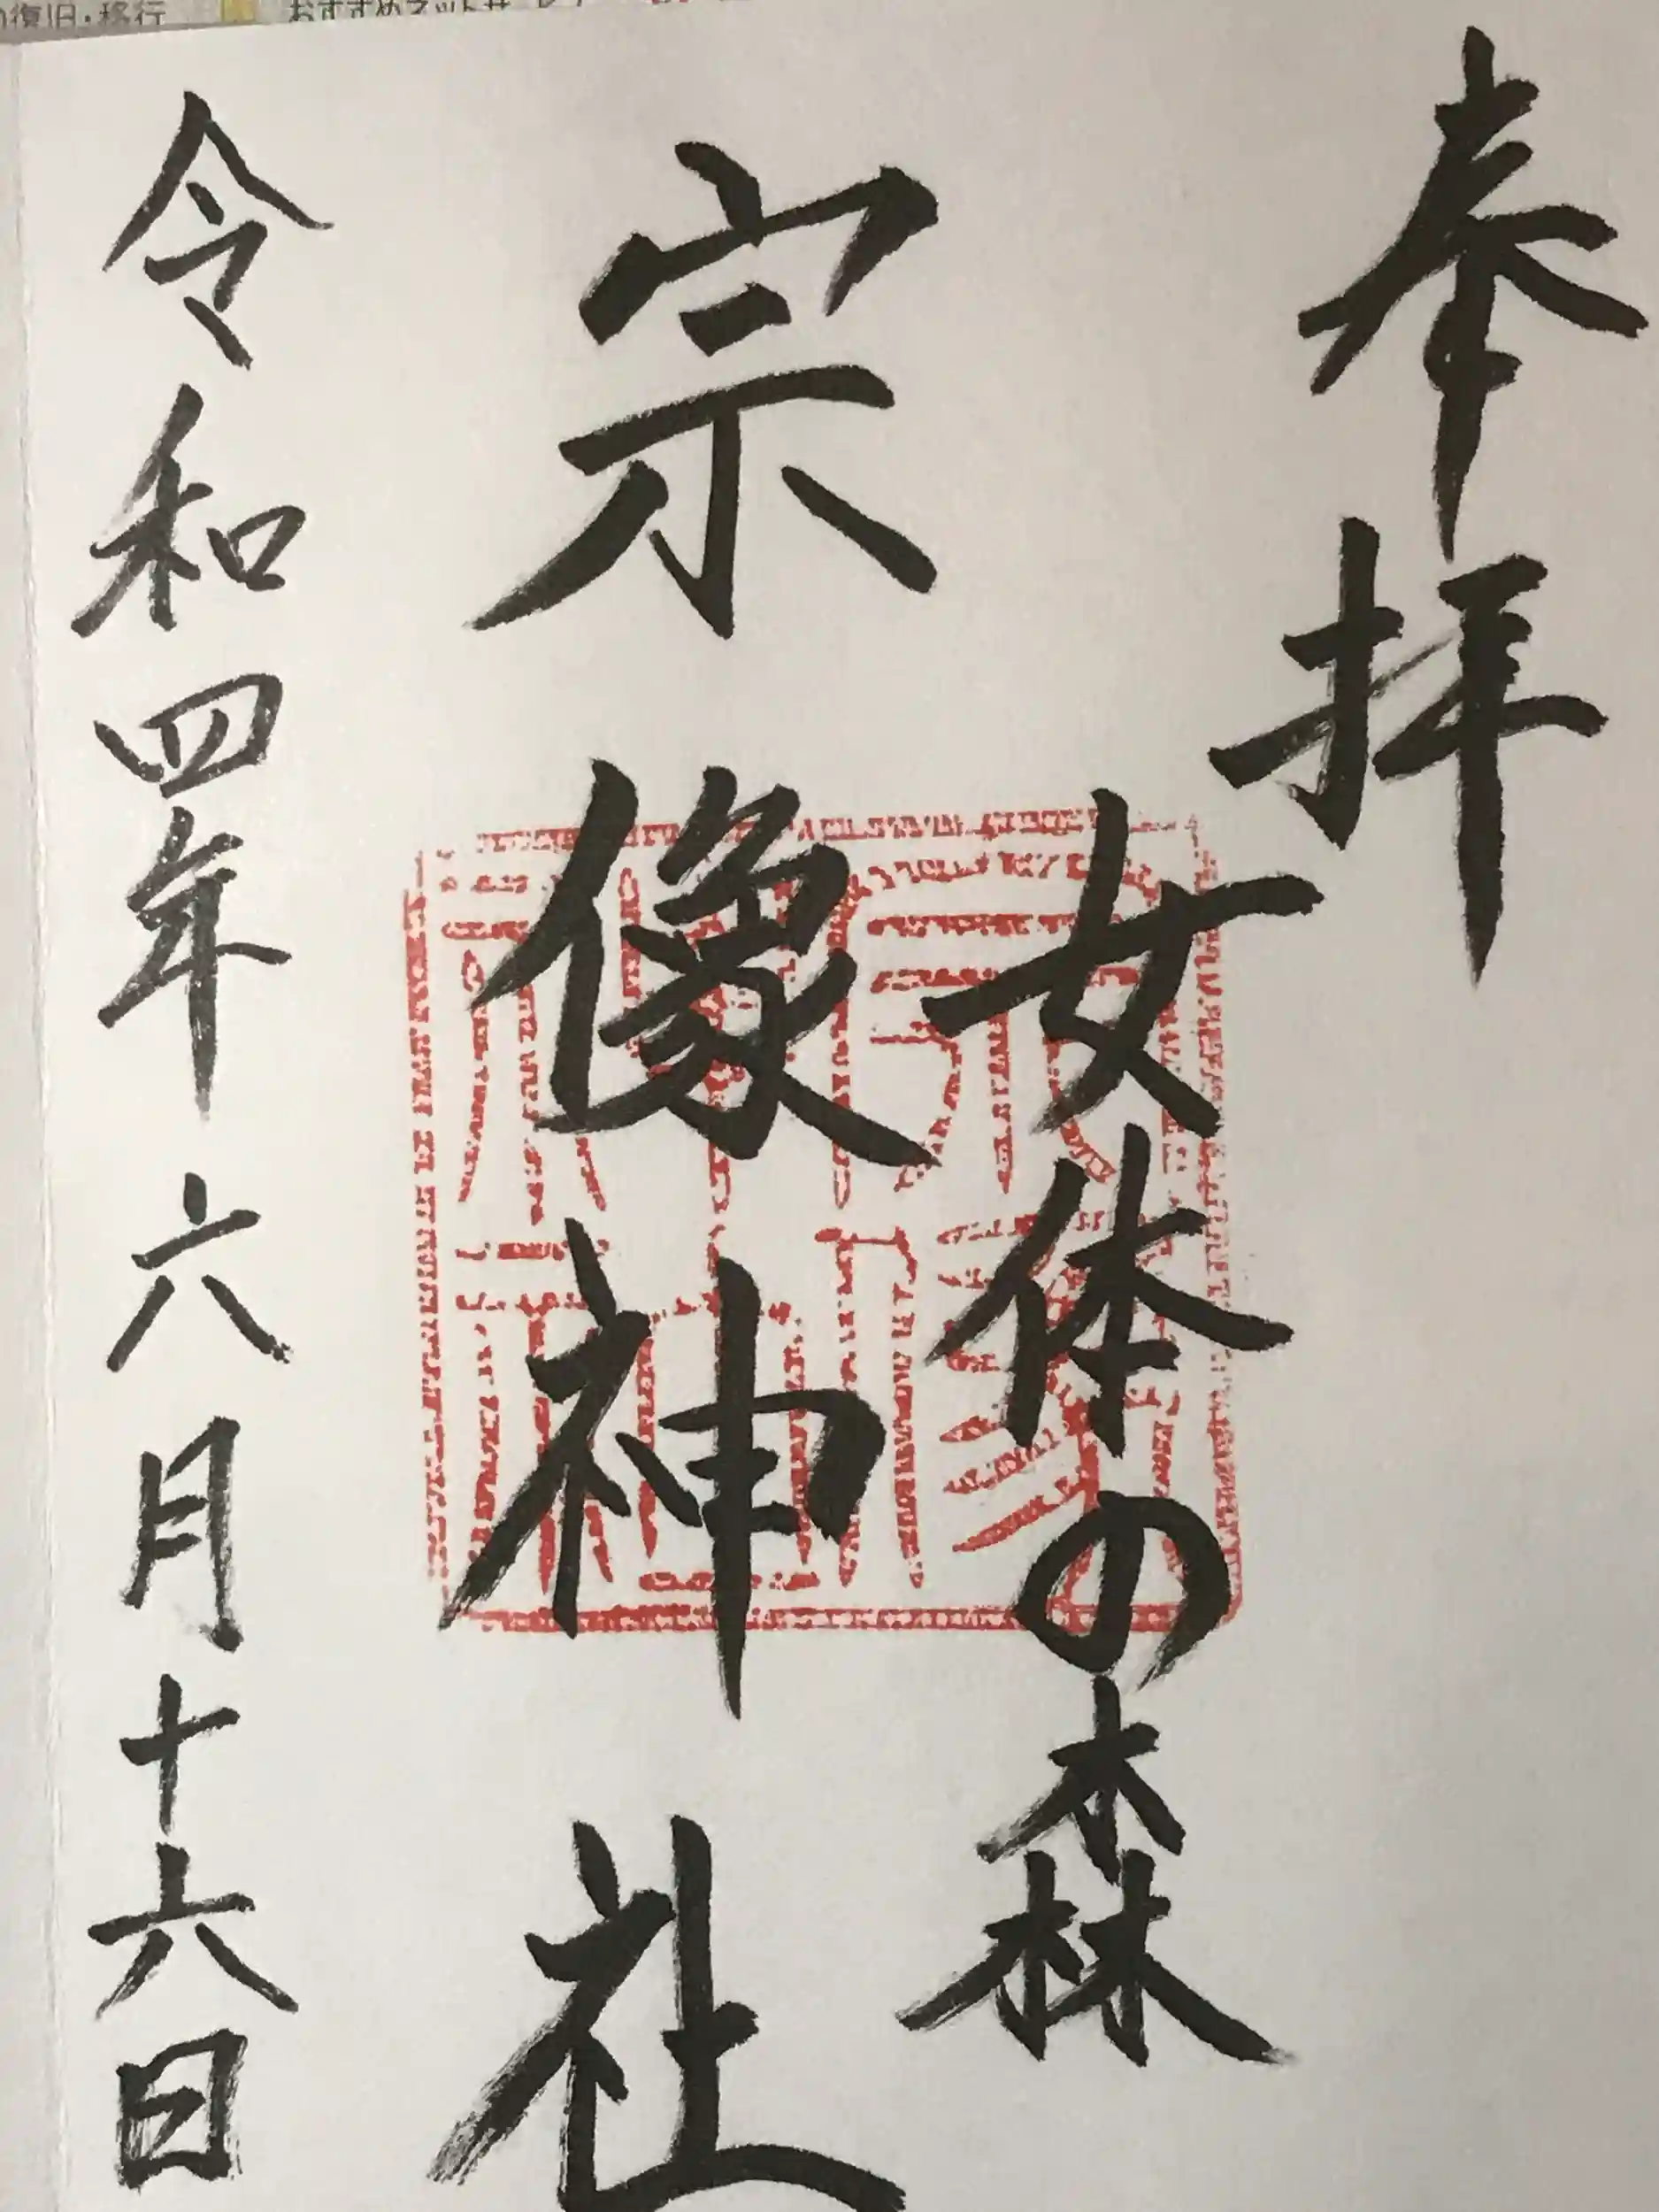 の復旧・移行
おすすめネットサービス
奉拝
女体の森
宗像神社
令和四年六月十六日